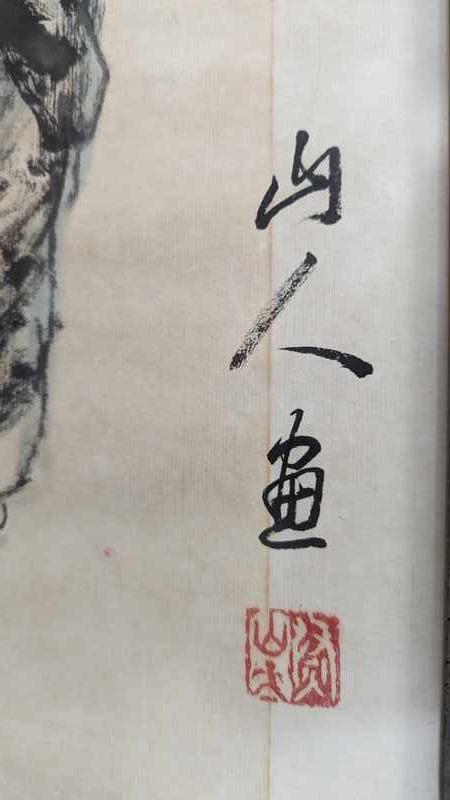 山
人
画